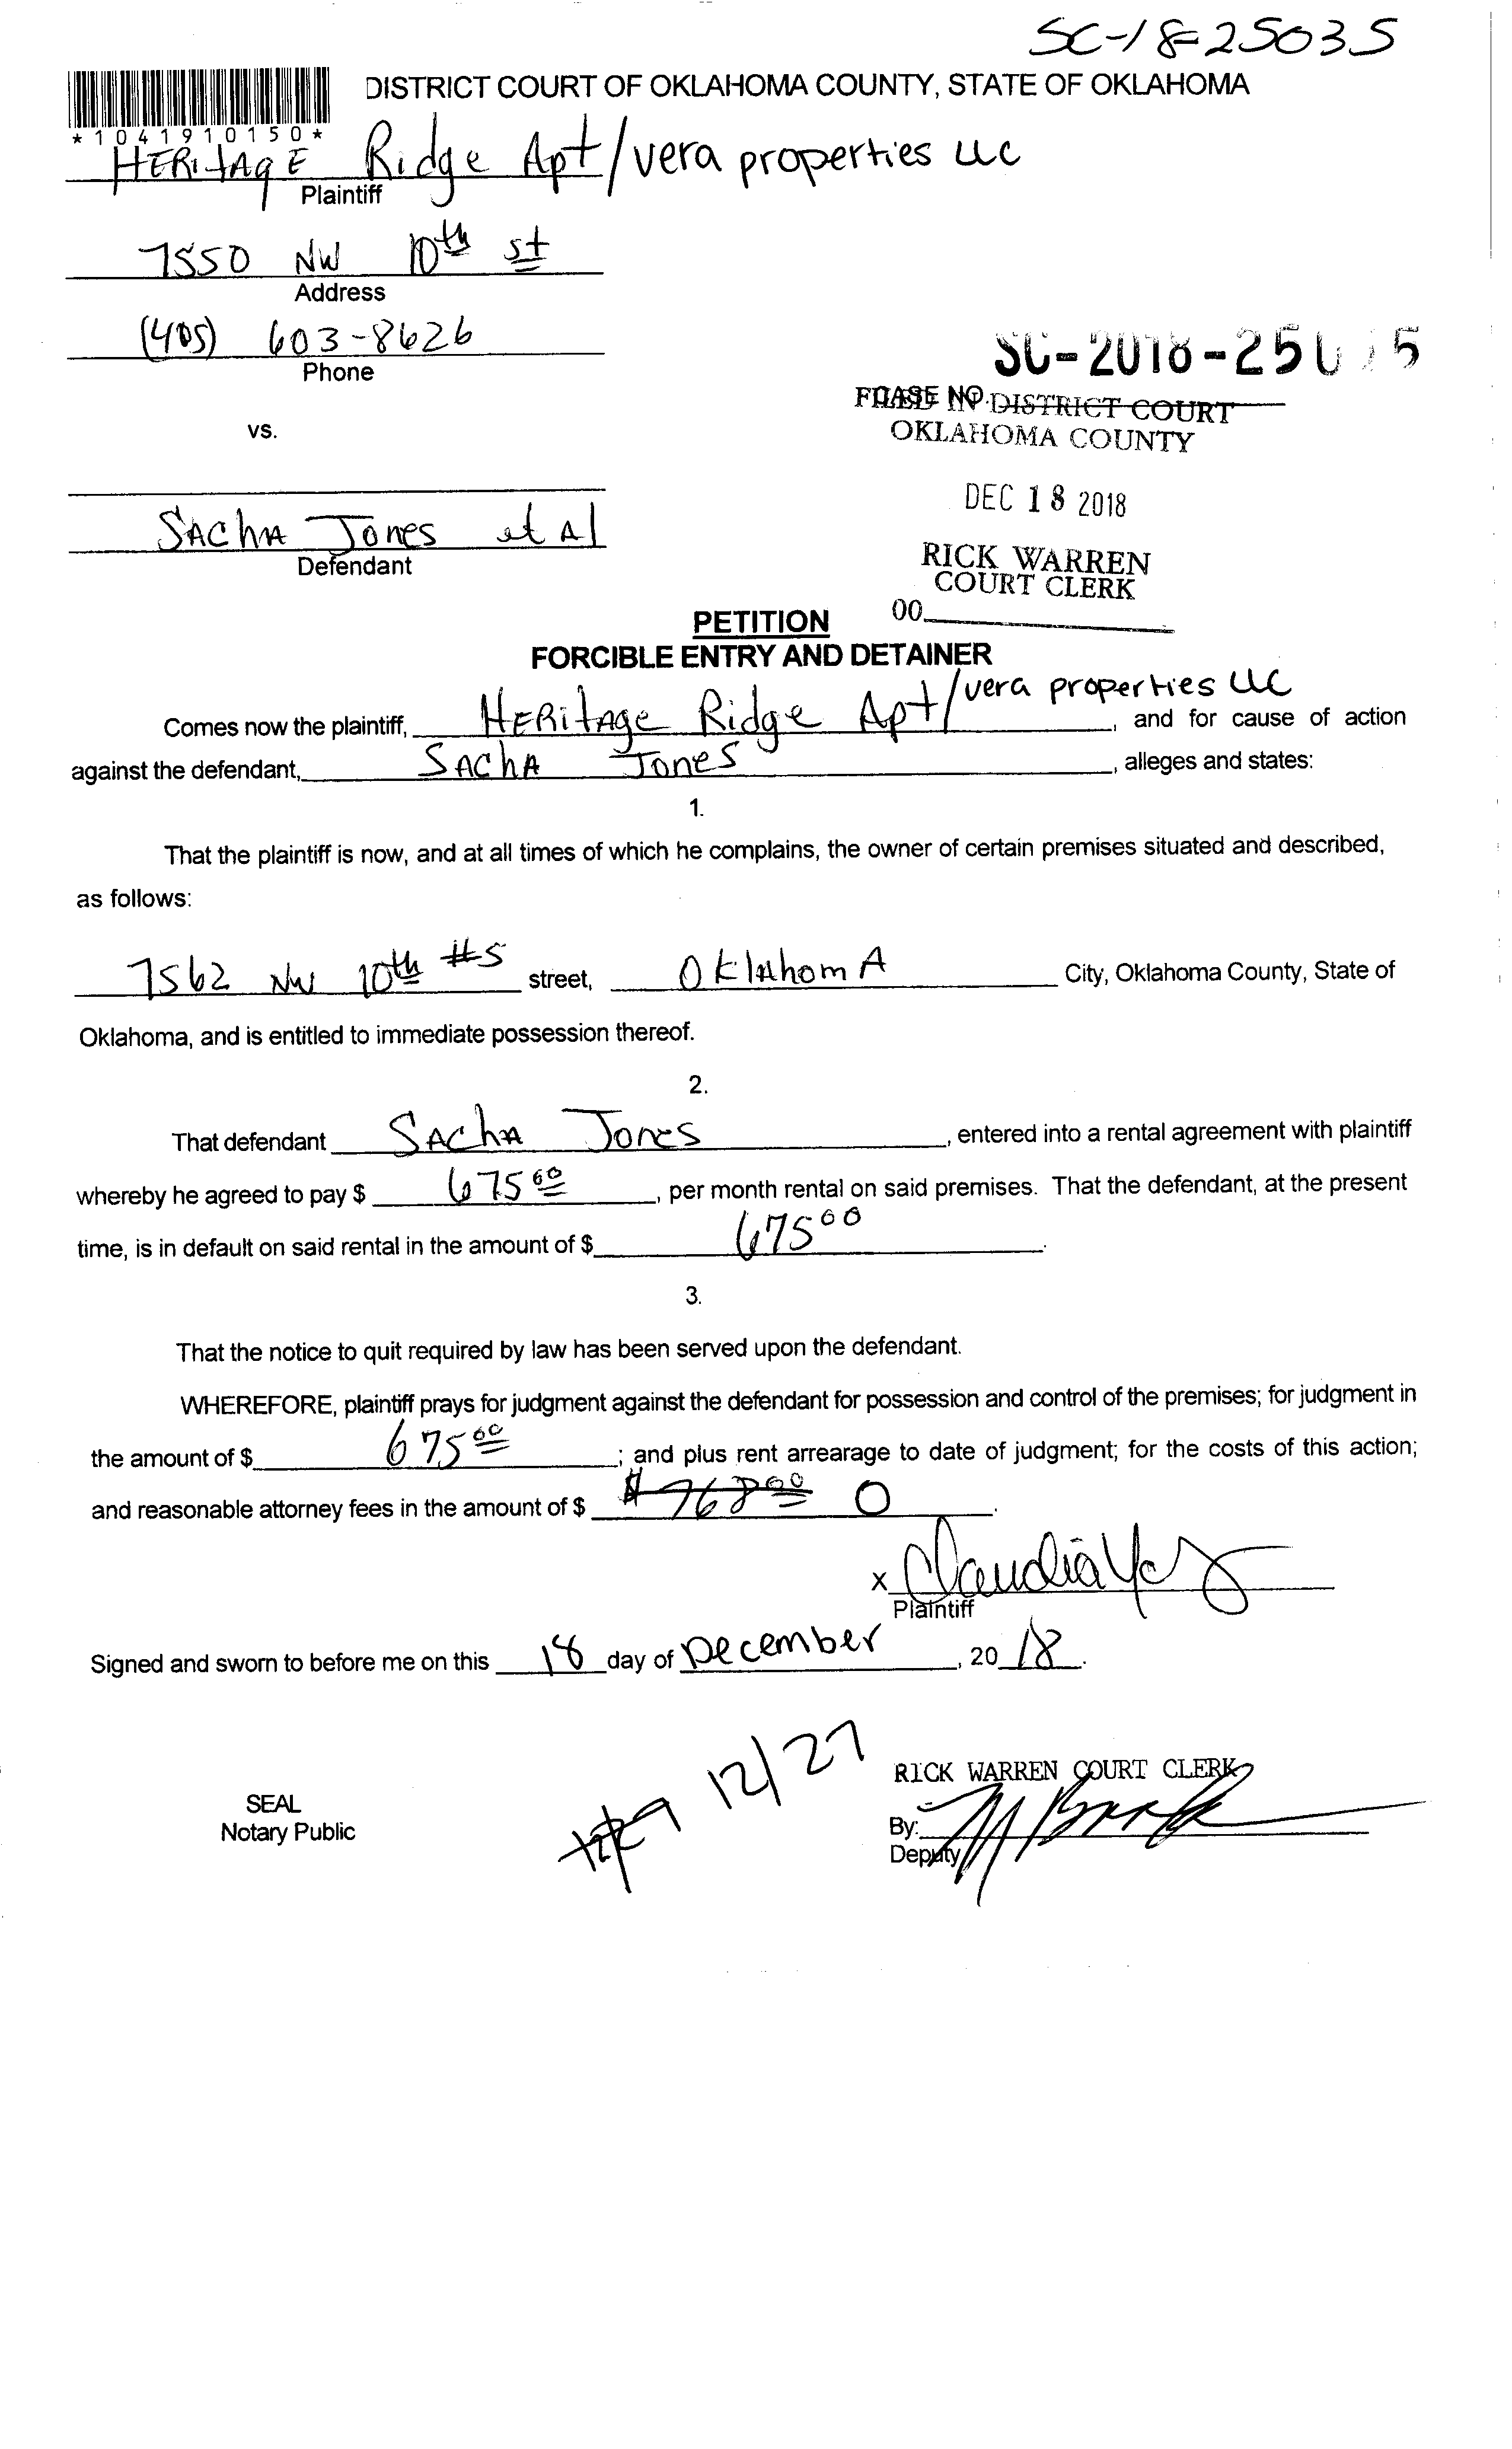 SC-18-25035
DISTRICT COURT OF OKLAHOMA COUNTY, STATE OF OKLAHOMA
*1041910150*
HERitAgE Ridge Apt/vera properties LLC
Plaintiff
7550 NW 10th st
Address
(405) 603-8626
Phone
SC-2018-250 5
CASE NO.
FILED IN DISTRICT COURT
OKLAHOMA COUNTY
vs.
DEC 18 2018
SAChA Jones et Al
Defendant
RICK WARREN
COURT CLERK
00
PETITION
FORCIBLE ENTRY AND DETAINER
Comes now the plaintiff, HERitAge Ridge Apt/vera properties LLC, and for cause of action
against the defendant, SAChA Jones, alleges and states:
1.
That the plaintiff is now, and at all times of which he complains, the owner of certain premises situated and described,
as follows:
7562 NW 10th #5 street, OklAhomA City, Oklahoma County, State of
Oklahoma, and is entitled to immediate possession thereof.
2.
That defendant SAChA Jones, entered into a rental agreement with plaintiff
whereby he agreed to pay $ 675 00, per month rental on said premises. That the defendant, at the present
time, is in default on said rental in the amount of $ 675 00.
3.
That the notice to quit required by law has been served upon the defendant.
WHEREFORE, plaintiff prays for judgment against the defendant for possession and control of the premises; for judgment in
the amount of $ 675 00; and plus rent arrearage to date of judgment; for the costs of this action;
and reasonable attorney fees in the amount of $ $768 00 0.
x Claudia
Plaintiff
Signed and sworn to before me on this 18 day of December, 2018.
12/27
RICK WARREN COURT CLERK
SEAL
Notary Public
By:
Deputy